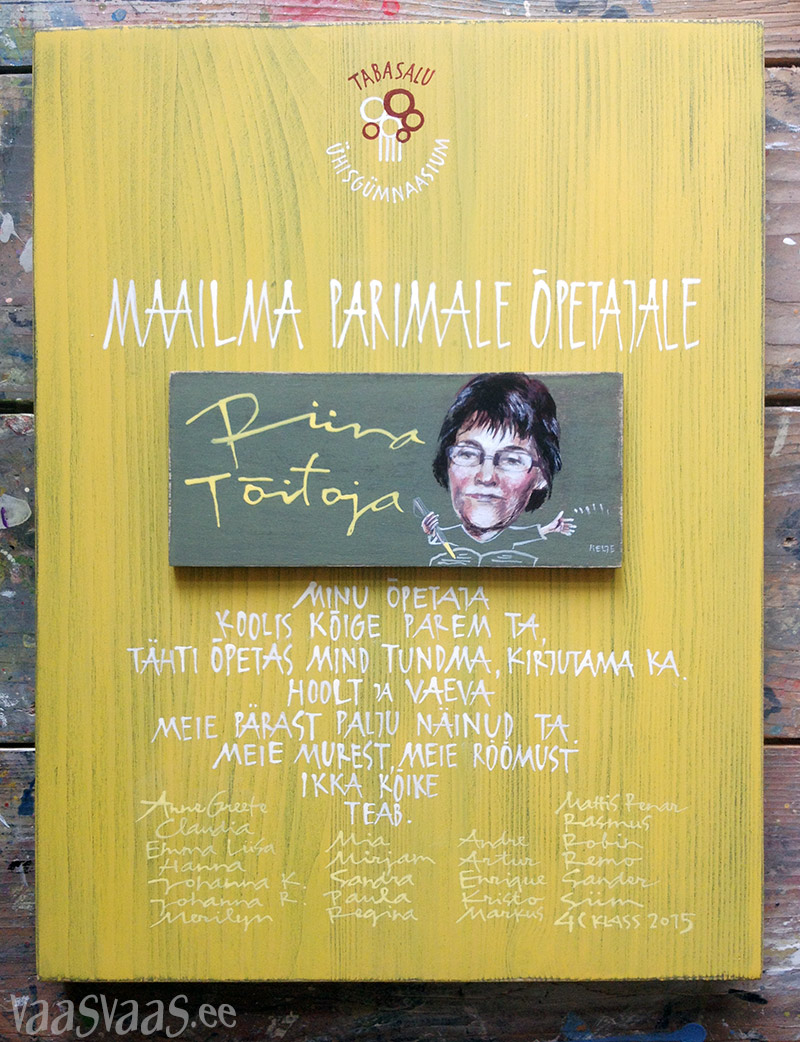 TABASALU
ÜHISGÜMNAASIUM
MAAILMA PARIMALE ÕPETAJALE
Riina
Tõitoja
MINU ÕPETAJA
KOOLIS KÕIGE PAREM TA,
TÄHTI ÕPETAS MIND TUNDMA, KIRJUTAMA KA.
HOOLT JA VAEVA
MEIE PÄRAST PALJU NÄINUD TA.
MEIE MUREST, MEIE RÕÕMUST
IKKA KÕIKE
TEAB.
Anne Greete
Claudia
Emma Liisa
Hanna
Johanna K.
Johanna R.
Merilyn
Mia
Mirjam
Sandra
Paula
Regina
Andre
Artur
Enrique
Kristo
Markus
Mattis Renar
Rasmus
Robin
Remo
Sander
Siim
4C KLASS 2015
vaasvaas.ee